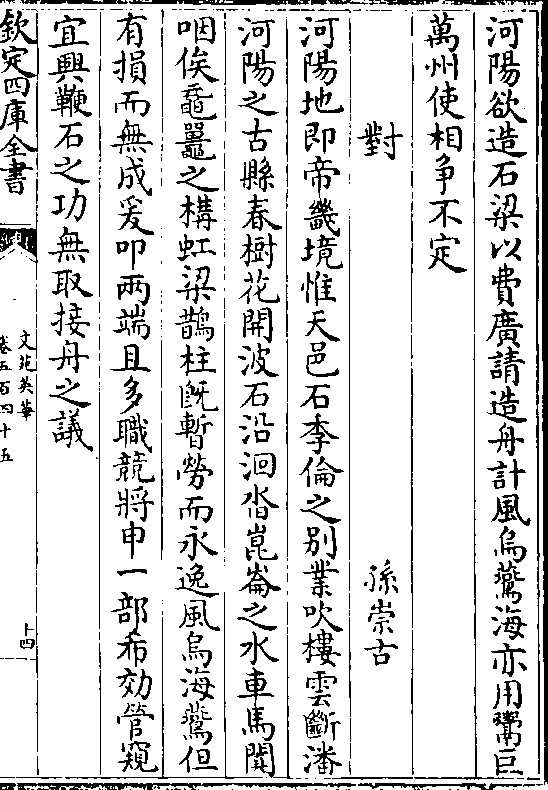 河陽欲造石梁以費廣請造舟計風烏鷰海亦用鬻巨
萬州使相争不定
對 孫崇古
河陽地即帝畿境惟天邑石季倫之别業吹樓雲斷潘
河陽之古縣春樹花開波石沿洄沓崑崙之水車馬闐
咽俟黿鼉之構虹梁鵲柱旣暫勞而永逸風烏海鷰但
有損而無成爰叩兩端且多職競將申一部希効管窺
宜興鞭石之功無取接舟之議
欽定四庫全書
文苑英華
卷五百四十五
十四